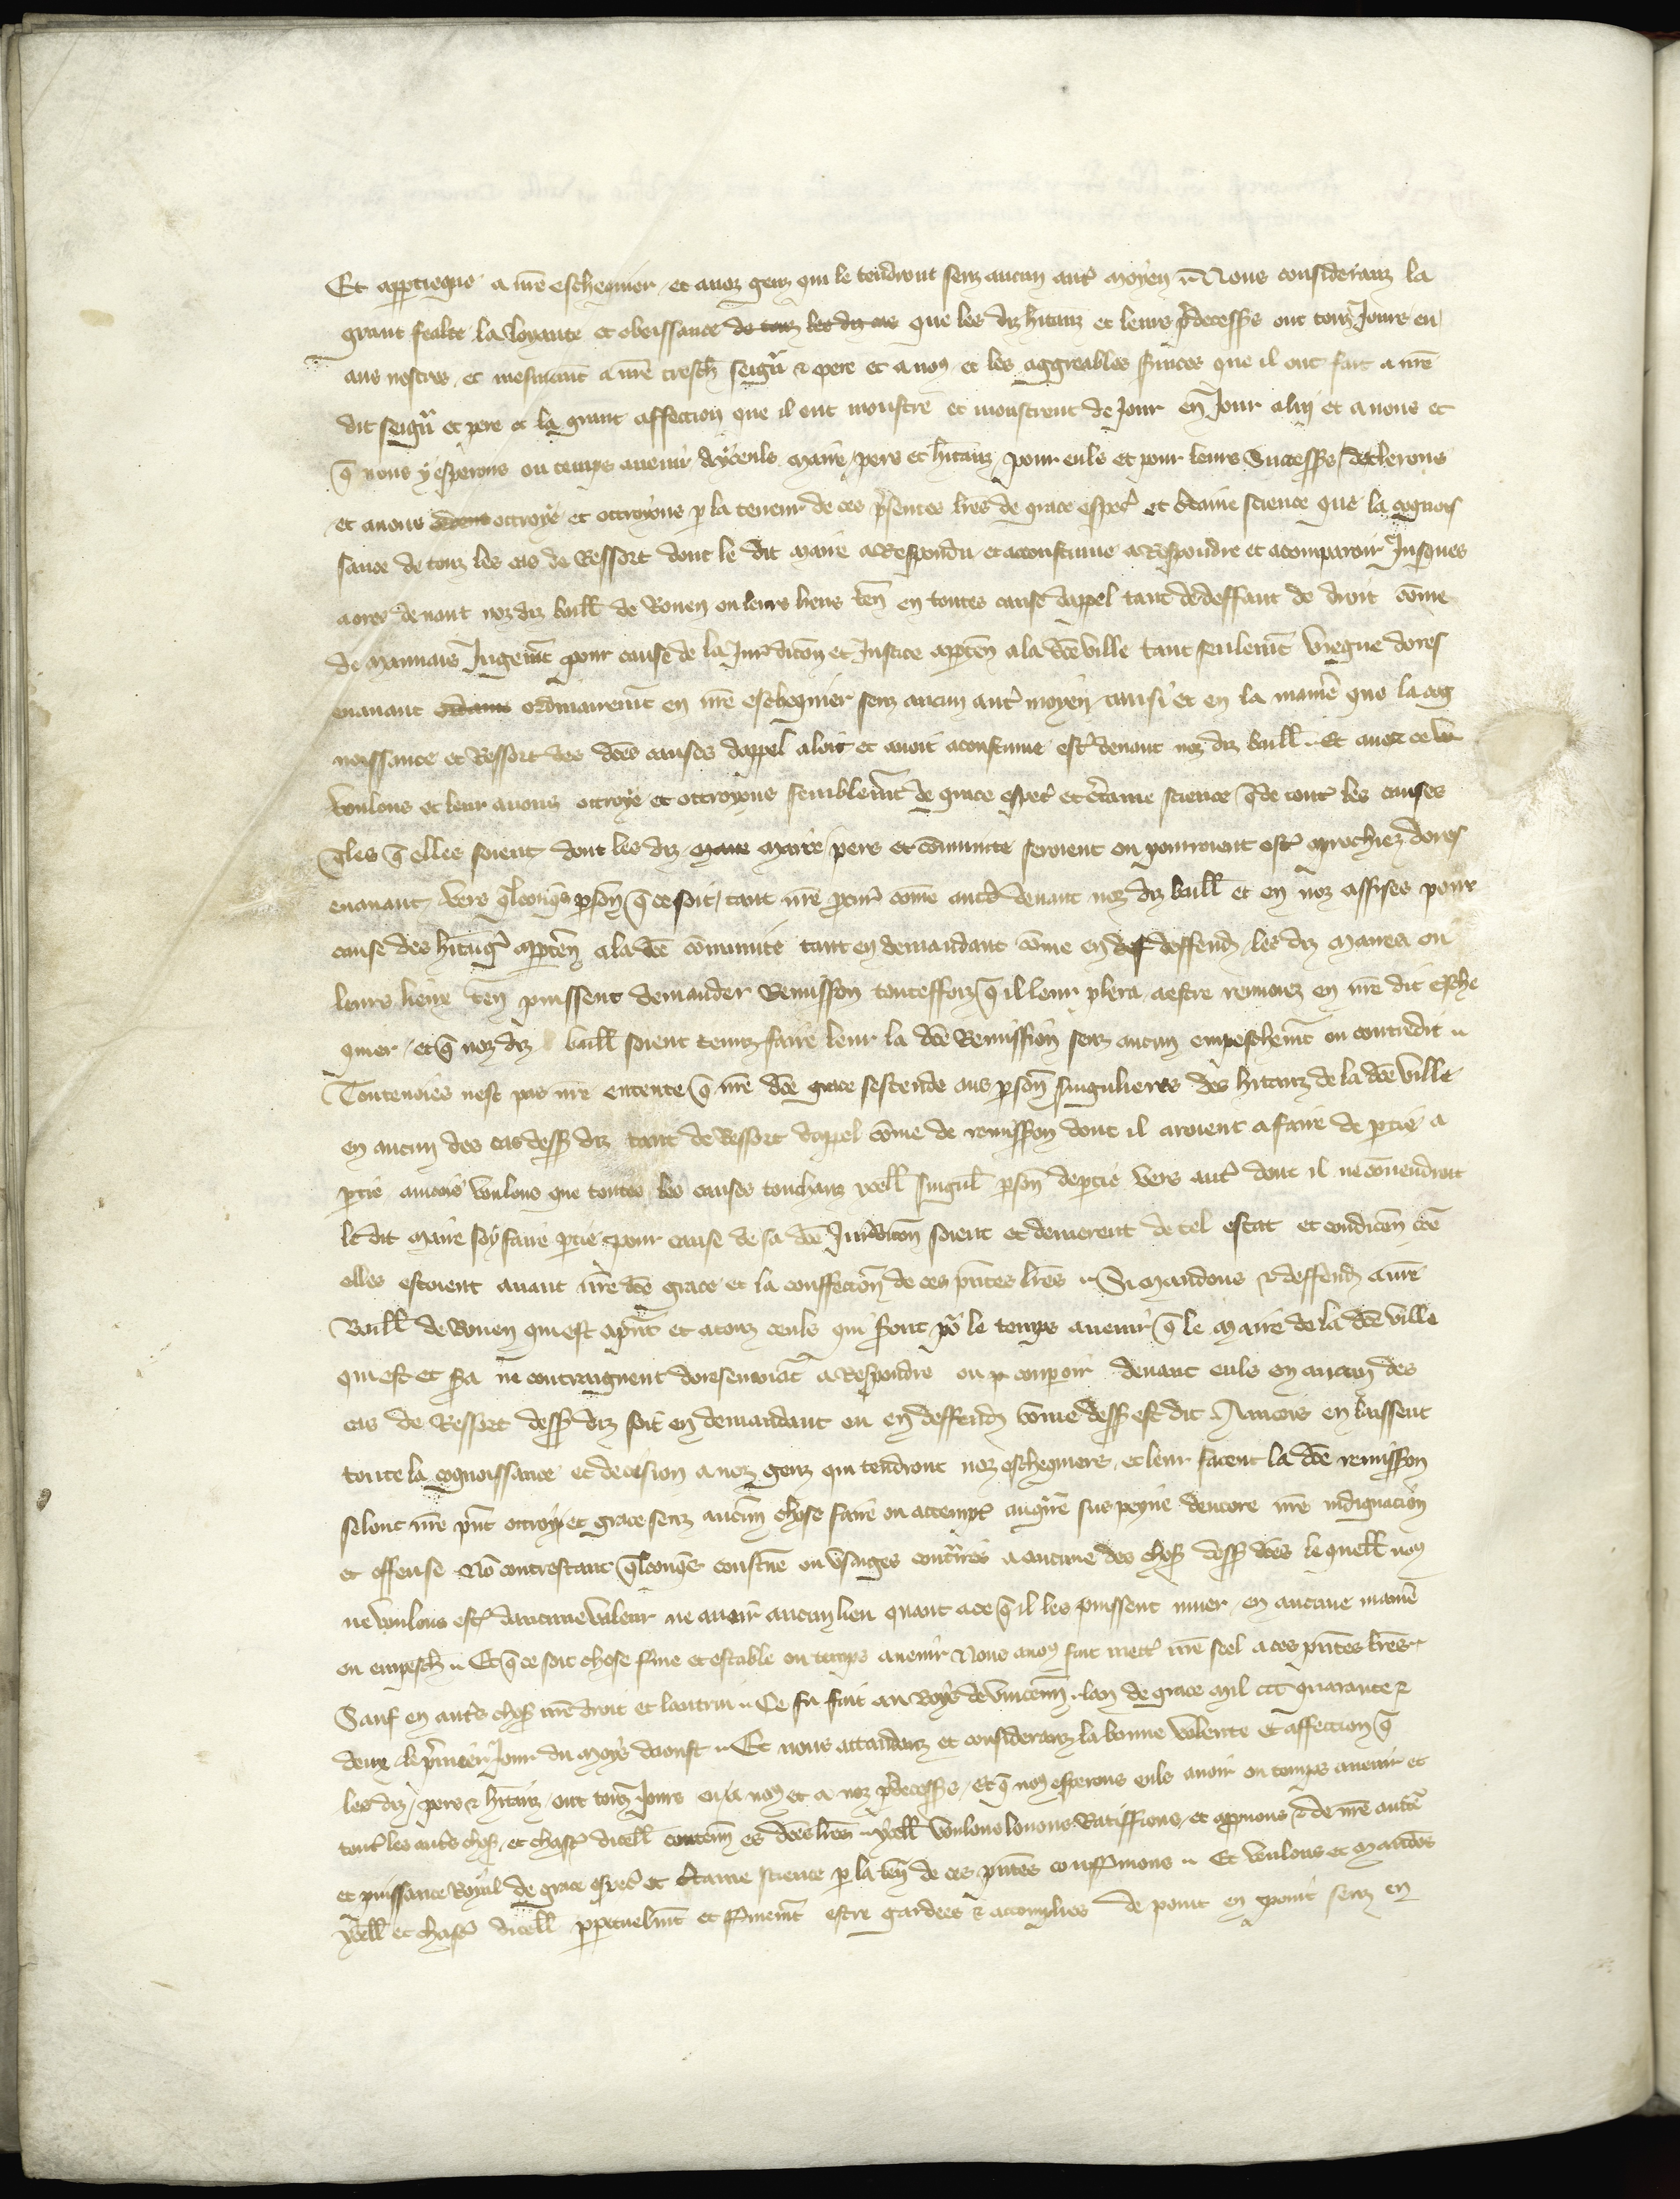 Et appertiegne a nr̃e eschequier et a noz genz qui le tendront senz aucun autr̃ moyen .. Nous consideranz la
grant fealte la loyaute et obeissance de touz les diz cas que les diz h̃itanz et leurs p̃decess̃s ont touz Jours eu
aus nostres et mesmem̃t a nr̃e tresch̃ seigñr & pere et a noꝰ et les aggreables s̃uices que il ont fait a nr̃e
dit seigñr et pere et la grant affection que il ont monstre et monstrent de Jour en Jour a luy et a nous et
q̃ nous y esperons ou temps auenir dyceuls maire pers et h̃itanz pour euls et pour leurs Success̃s declerons
et auons ottroye et ottroyons p la teneur de ces p̃sentes lr̃es de grace esp̃al et c̃taine science que la cognois
sance de touz les cas de Ressort dont le dit maire a Respondu et acoustume a Respondre et a comparoir Jusques
a ores deuant noz diz baill̃ de Rouen ou leurs lieux ten̄ en toutes cause dappel tant de deffaut de droit cōme
de mauuais Jugem̃t pour cause de la Juridicõn et Justice appten̄ a la dc̃e ville tant seulem̃t viegne dores
enauant ordinairem̃t en nr̃e eschequier senz aucun autr̃ moyen / tausi et en la manie᷑ que la cog
noissance et Ressort des dc̃es causes dappel aloit et auoit acoustume estr̃ deuant noz diz baill̃ .. Et auec ce
voulons et leur auons ottroye et ottroyons semblem̃t de grace esp̃al et c̃taine science q̃ de tout̃ les causes
q̃les q̃ elles soient dont les diz maire pers et cōmunite seroient ou pourroient estr̃ aprochiez dores
enauant vers q̃lconq̃s psōn q̃ ce soit / tant nr̃e pcur̃ cōme autr̃ deuant noz diz baill̃ et en noz assises pour
cause des h̃itag̃ apptēn a la dc̃e cōmunite tant en demandant cōme en deffend̃ les diz maires ou
leurs lieux ten̄ puissent demander Remission touteffoiz q̃ il leur plera a estre remis en nr̃e dit esche
quier / et q̃ noz diz baill̃ soient tenuz faire leur la dc̃e Remission senz aucun empeschem̃t ou contredit ..
Touteuoies nest pas nr̃e entente q̃ nr̃e dc̃e grace sestende aus psōn singulieres des h̃itanz de la dc̃e ville
en aucun des cas dess̃ diz tant de Ressort dappel cōme de remission dont il aroient a faire de ptie a
ptie ancois voulons que toutes les causes touchanz ycell̃ singul̃ psōn de ptie vers autr̃ dont il ne cōuendroit
le dit maire soy faire ptie pour cause de sa dc̃e Juridicõn soient et demeurent de tel estat et condicōn cõe
elles estoient auant nr̃e dc̃e grace et la conffection de ces pñtes lr̃es .. Si mandons & deffend̃ a nr̃e
Baill̃ de Rouen qui est a pñt et a touz ceuls qui s̃ont po᷑ le temps auenir q̃ le maire de la dc̃e ville
qui est et s̃a ne contraignent doresenauāt a Respondre ou conparoir deuant euls en aucun des
cas de Ressort dess̃ diz soit en demandant ou en deffend̃ cōme dess̃ est dit Aincois en laissent
toute la cognoissance et decision a noz genz qui tendront noz eschequiers et leur facent la dc̃e remission
selonc nr̃e pñt ottroy et grace senz aucun̄ chose faire ou attempt̃ au cont᷑re sus peyne dencore nr̃e indignacion
et offense Nō contrestant q̃lconq̃s coustume ou vsages cont᷑res a aucune des chos̃ dess̃ dc̃es lequell̃ noꝰ
ne voulons estr̃ daucune valeur ne auoir aucun lieu quant a ce q̃ il les puissent nuer / en aucune manie᷑
ou empesch̃ .. Et q̃ ce soit chose s̃me et estable ou temps auenir Nous auoꝰ fait mett̃ nr̃e seel a ces pñtes lr̃es ..
Sauf en autr̃s chos̃ nr̃e droit et lautrui .. Ce fu fait au Boys de Vincenn̄ . lan de grace mil ccc quarante &
deux le p̃mier Jour du moys daoust .. Et nous attendanz et consideranz la bonne volente et affection q̃
les diz pers & h̃itanz ont touz Jours eu a noꝰ et a noz p̃decess̃s / et q̃ noꝰ esperons euls auoir ou temps auenir et
tout̃ les autr̃s chos̃ / et chasc̃ dicell̃ contenu es dc̃es lr̃es .. ycell̃ voulons louons Ratiffions / et appuons & de nr̃e auct̃e
et puissance Royal de grace esp̃al et c̃taine science p la ten̄ de ces pñtes conf̃mons .. Et voulons et mandōs
ycell̃ et chasc̃ dicell̃ ppetuelm̃t et f̃mem̃t estre gardees & accomplies de point en point senz en